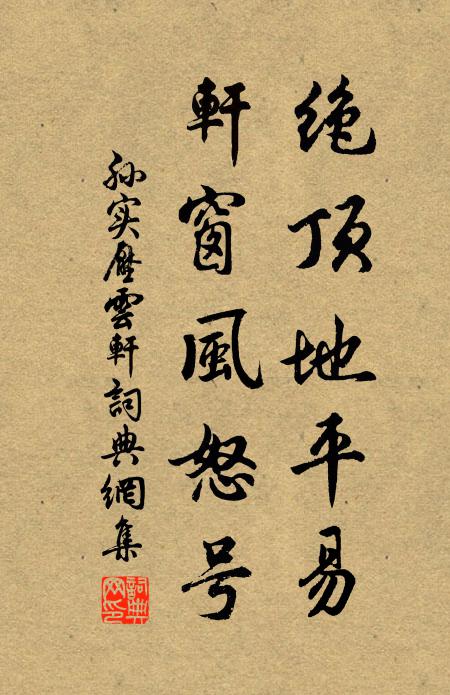 绝顶地平易
軒窗風怒号
孙实壓雲軒詞典網集
詞典网印